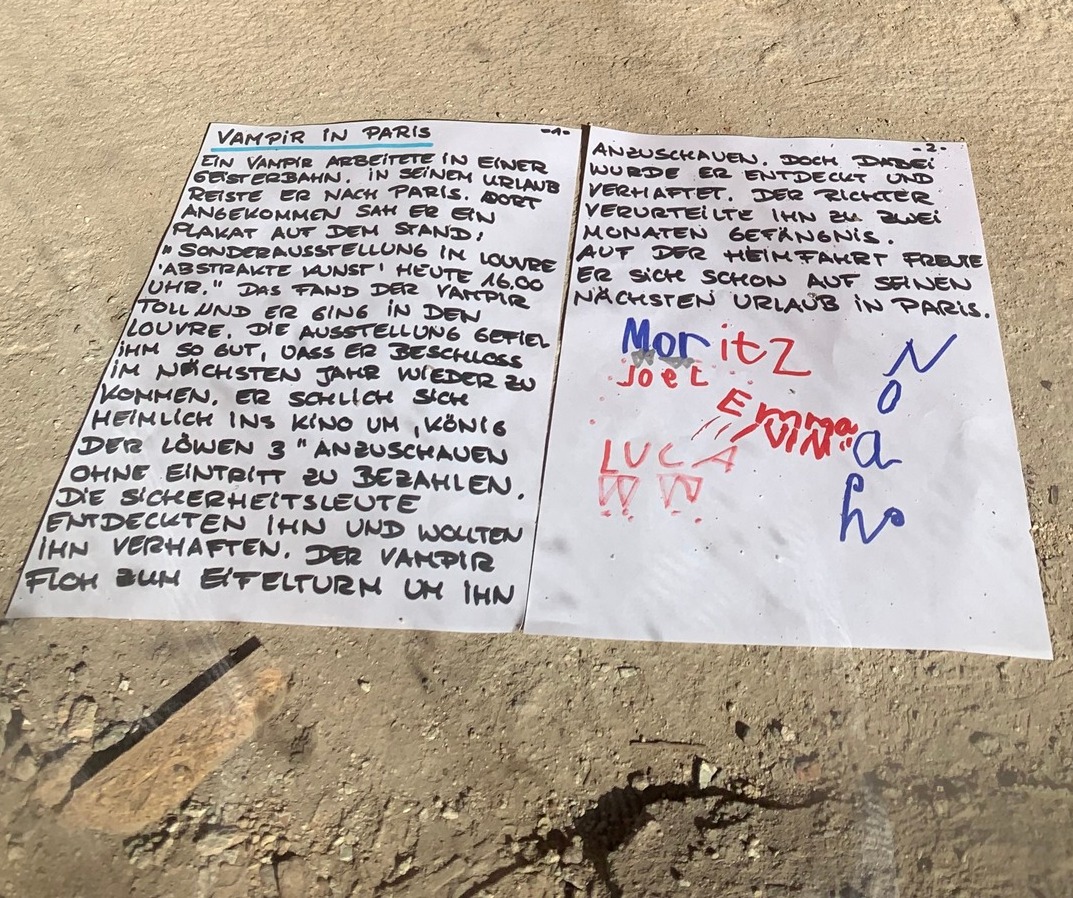 VAMPIR IN PARIS
-1-
EIN VAMPIR ARBEITETE IN EINER
GEISTERBAHN. IN SEINEM URLAUB
REISTE ER NACH PARIS. DORT
ANGEKOMMEN SAH ER EIN
PLAKAT AUF DEM STAND:
"SONDERAUSSTELLUNG IN LOUVRE
'ABSTRAKTE KUNST' HEUTE 16.00
UHR." DAS FAND DER VAMPIR
TOLL UND ER GING IN DEN
LOUVRE. DIE AUSSTELLUNG GEFIEL
IHM SO GUT, DASS ER BESCHLOSS
IM NÄCHSTEN JAHR WIEDER ZU
KOMMEN. ER SCHLICH SICH
HEIMLICH INS KINO UM „KÖNIG
DER LÖWEN 3" ANZUSCHAUEN
OHNE EINTRITT ZU BEZAHLEN.
DIE SICHERHEITSLEUTE
ENTDECKTEN IHN UND WOLLTEN
IHN VERHAFTEN. DER VAMPIR
FLOH ZUM EIFELTURM UM IHN
-2-
ANZUSCHAUEN. DOCH DABEI
WURDE ER ENTDECKT UND
VERHAFTET. DER RICHTER
VERURTEILTE IHN ZU ZWEI
MONATEN GEFÄNGNIS.
AUF DER HEIMFAHRT FREUTE
ER SICH SCHON AUF SEINEN
NÄCHSTEN URLAUB IN PARIS.
Moritz
Joel
Emma
LUCA
Noah